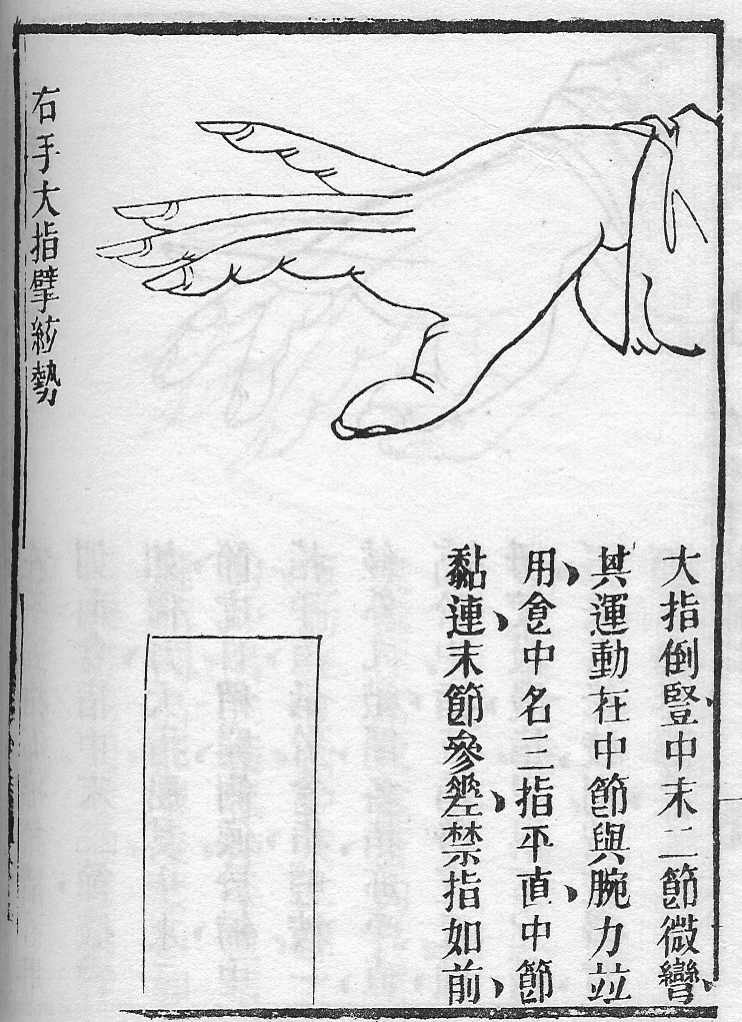 大指倒豎、中末二節微彎、
其運動在中節與腕力並
用、食中名三指平直、中節
黏連、末節參差、禁指如前、
右手大指擘絃勢